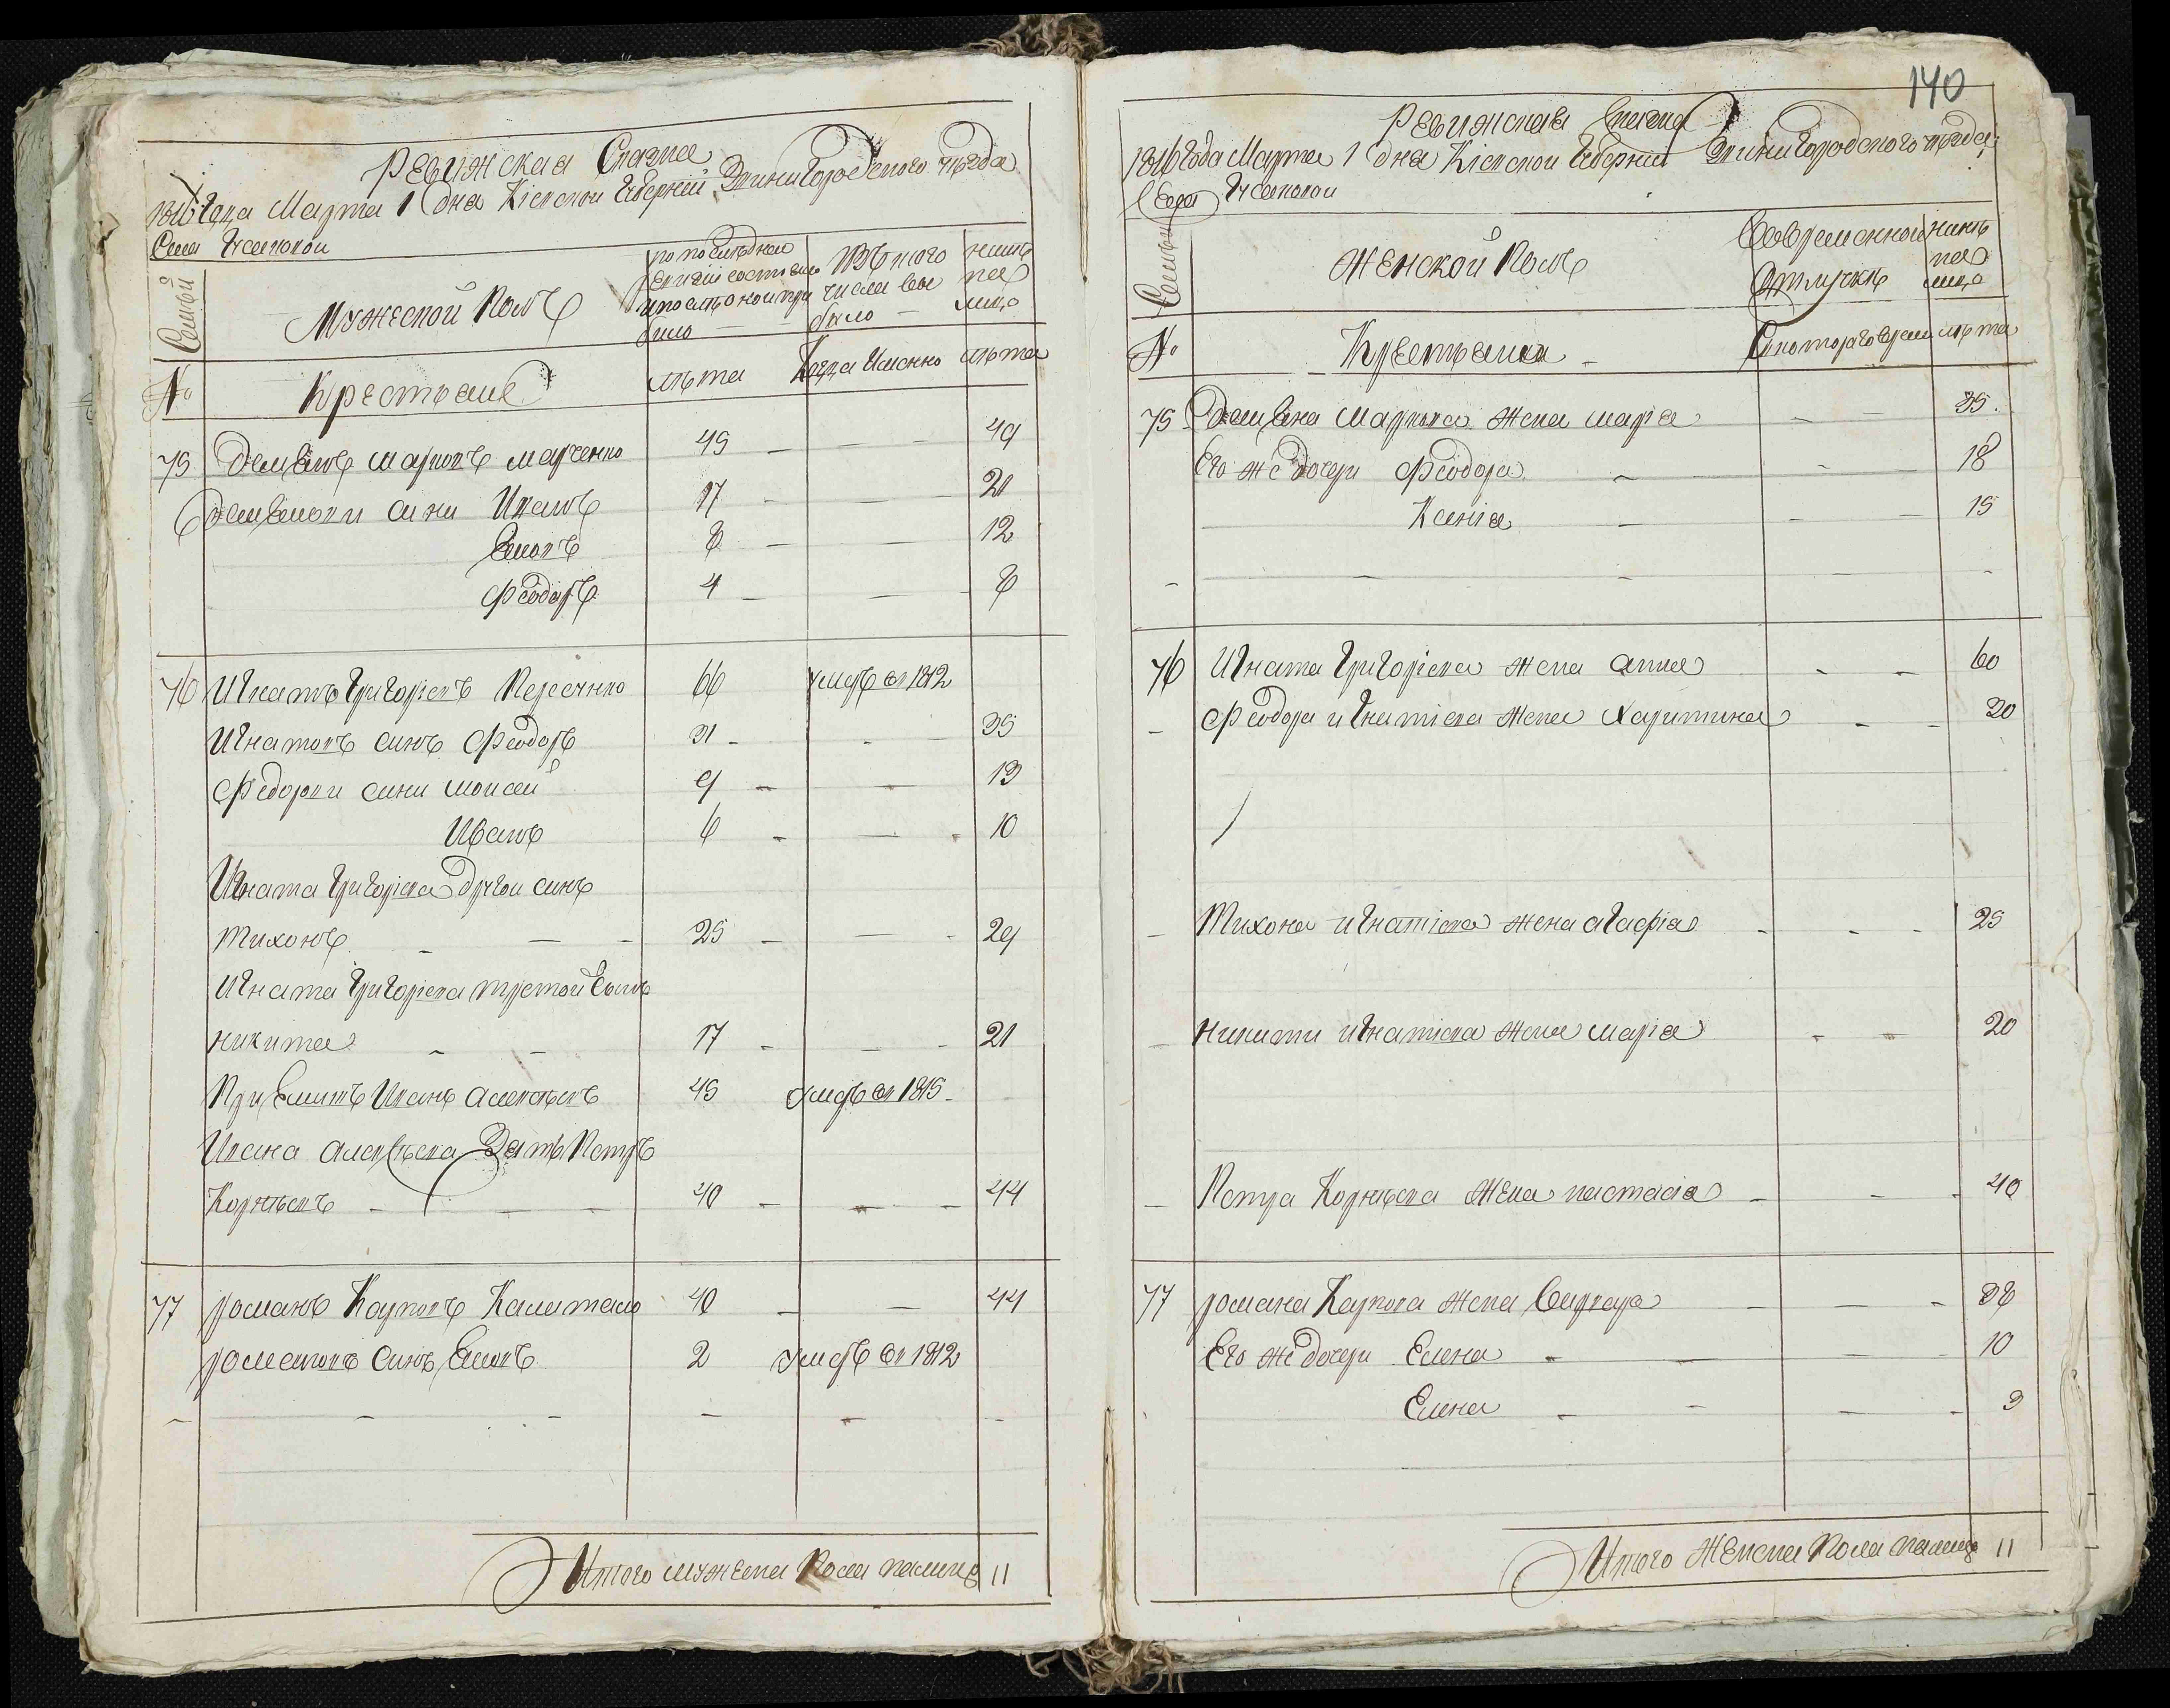 Ревижская Сказка
1816 года Марта 1 дня Кіевской Губерніи Звинигородского уѣзда
Села
Семьи
Мужеской Полъ
по последней ревизіи состояло и после оной при было
Изъ того числа вы было
ныне на лицо
№
Крестьяне
лѣта
Когда Именно
лѣта
75 Демьянъ Марковъ Марченко 45 - - - 49
Демьянови сини Иванъ 17 - - 20
Семенъ 8 - - 12
Феодоръ 4 - - 8
76 Игнатъ Григоріевъ Пересунко 66 умеръ въ 1812
Игнатовъ синъ Феодоръ 31 - - 35
Федорови сини Моисей 9 - - 13
Иванъ 6 - - 10
Игната Григоріева другои синъ
Тихонъ - - - 25 - - - 29
Игната Григоріева третои сынъ
Никита - - 17 - - - 21
Приемишъ Иванъ Алексѣевъ 45 умеръ въ 1815 -
Ивана Алексѣева Зять Петръ
Корнѣевъ - - - 40 - - - 44
77 Романъ Карповъ 40 - - 44
Романовъ Синъ Семенъ 2 умеръ въ 1812
Итого мужеска Пола налицо 11
140
Ревижская Сказка
1816 Года Марта 1 дня Кіевской Губерніи Звинигородского уѣзда
Села
Семьи
Женской Полъ
Во временной отлучкѣ
нинѣ на лицо
№
Крестьянки
С котораго времени
лѣта
75 Демьяна Маркова жена Марія - - 35.
Его же дочери Феодора - - - 18
Ксенія - - - 15
76 Игната Григоріева жена Анна - - 60
- Феодора Игнатіева жена Харитина - - 30
- Тихона Игнатіева жена Агафія - - - 25
- Никити Игнатіева жена Марія - - 20
- Петра Корнѣева жена Настасія - - - 40
77 Романа Карпова жена - - - 38
Его же дочери Елена - - - 10
Елена - - - - 3
Итого Женска Пола налицо 11